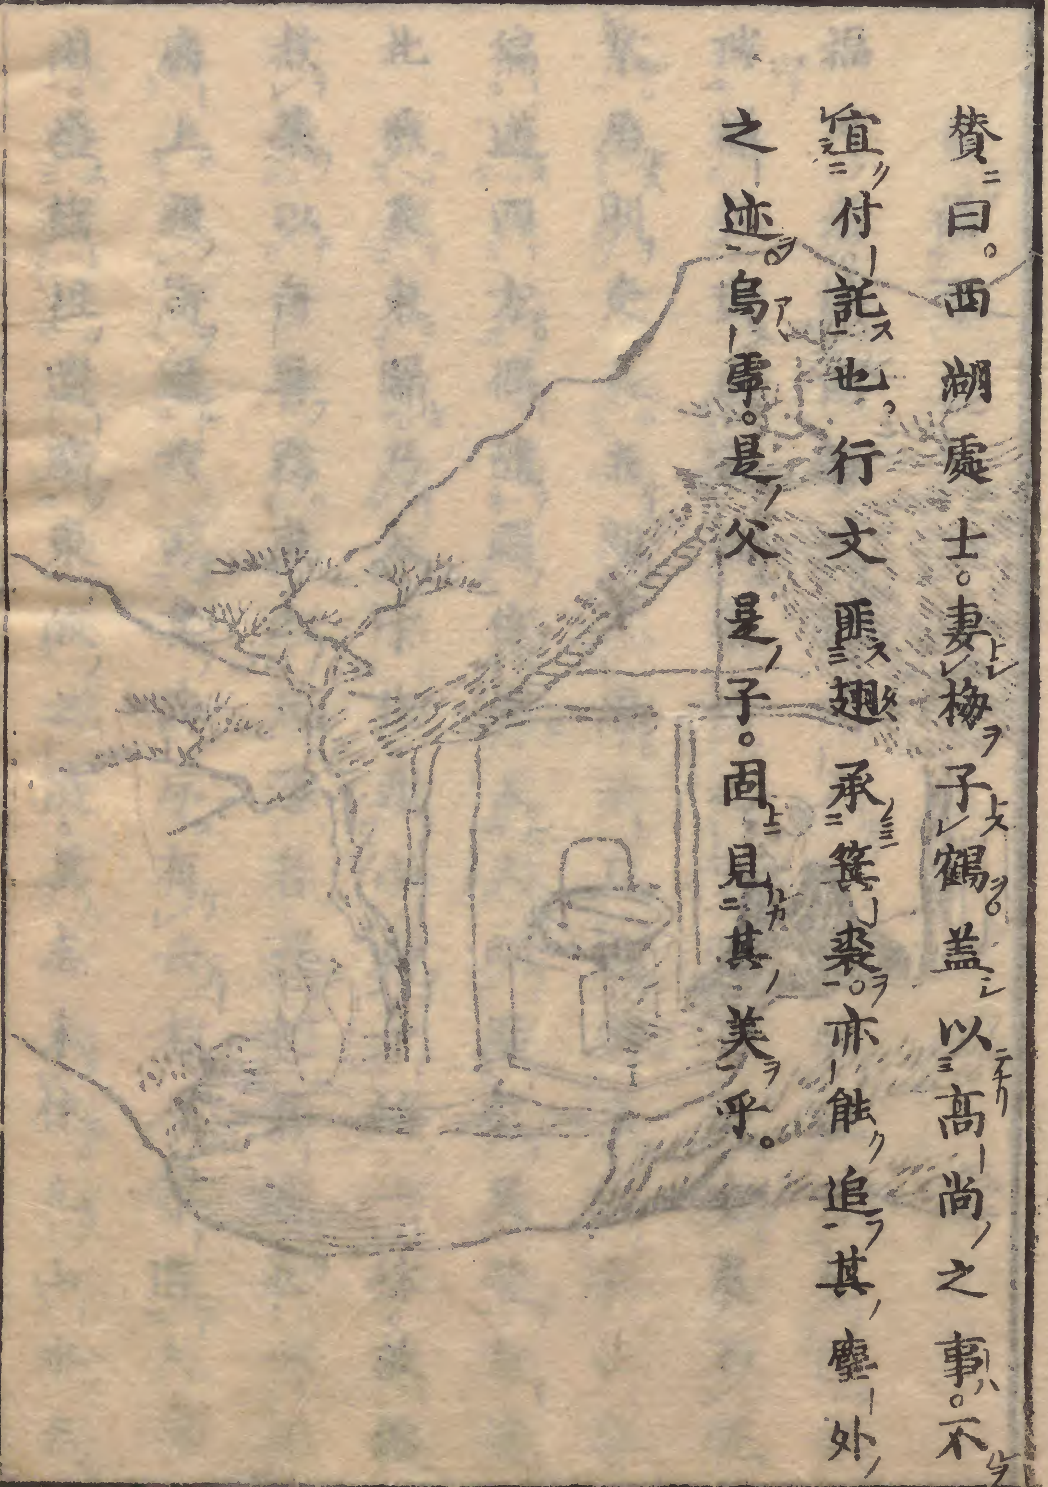 賛曰。西湖處士。妻梅子鶴。盖以高尚之事。不
宜付託也。行文匪翅承箕裘。亦能追其塵外
之迹。烏虖。是父是子。固見其美乎。